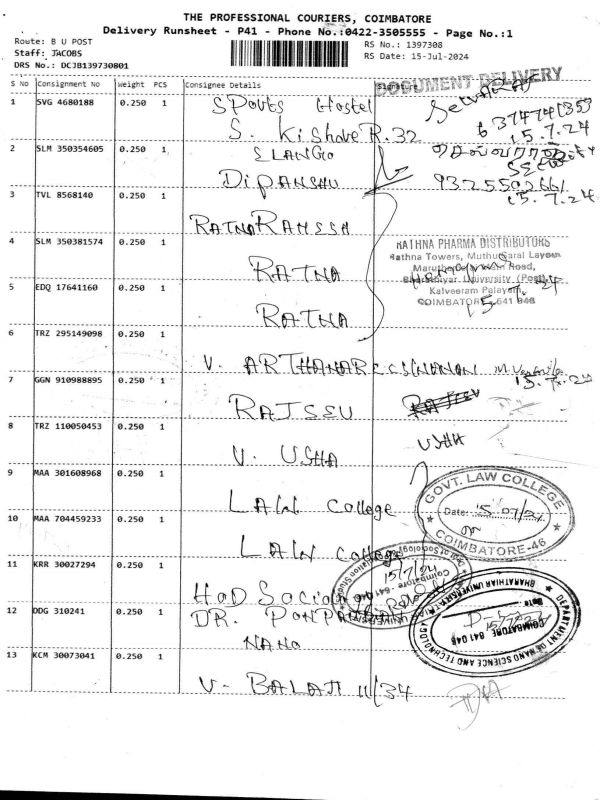 THE PROFESSIONAL COURIERS, COIMBATORE
Delivery Runsheet - P41 - Phone No.:0422-3505555 - Page No.:1
Route: B U POST
Staff: JACOBS
DRS No.: DCJB139730801
RS No.: 1397308
RS Date: 15-Jul-2024
DOCUMENT DELIVERY
S No Consignment No Weight PCS Consignee Details
1 SVG 4680188 0.250 1 Sports Hostel
S. Kishore R. 32
15.7.24
2 SLM 350354605 0.250 1 ELANGO
DIPANSHU
9325502661
15.7.24
3 TVL 8568140 0.250 1
RATNA
4 SLM 350381574 0.250 1 RATNA
RATHNA PHARMA DISTRIBUTORS
Rathna Towers, Muthu Layout
Road,
Bharathiyar University (Post)
Kalveeram Palayam,
COIMBATORE 641 046
5 EDQ 17641160 0.250 1
RATNA
6 TRZ 295149098 0.250 1
V.
15.7.24
7 GGN 910988895 0.250 1 RAJEEV
8 TRZ 110050453 0.250 1 USHA
V. USHA
9 MAA 301608968 0.250 1
LAW College
GOVT. LAW COLLEGE
Date: 15/07/24
COIMBATORE-46
10 MAA 704459233 0.250 1
LAW College
11 KRR 30027294 0.250 1
15/7/24
Coimbatore 641 046
HOD
12 DDG 310241 0.250 1 DR.
NANO
DEPARTMENT OF NANO SCIENCE AND TECHNOLOGY
BHARATHIAR UNIVERSITY
COIMBATORE 641 046
13 KCM 30073041 0.250 1
V. BALAJI 11/34